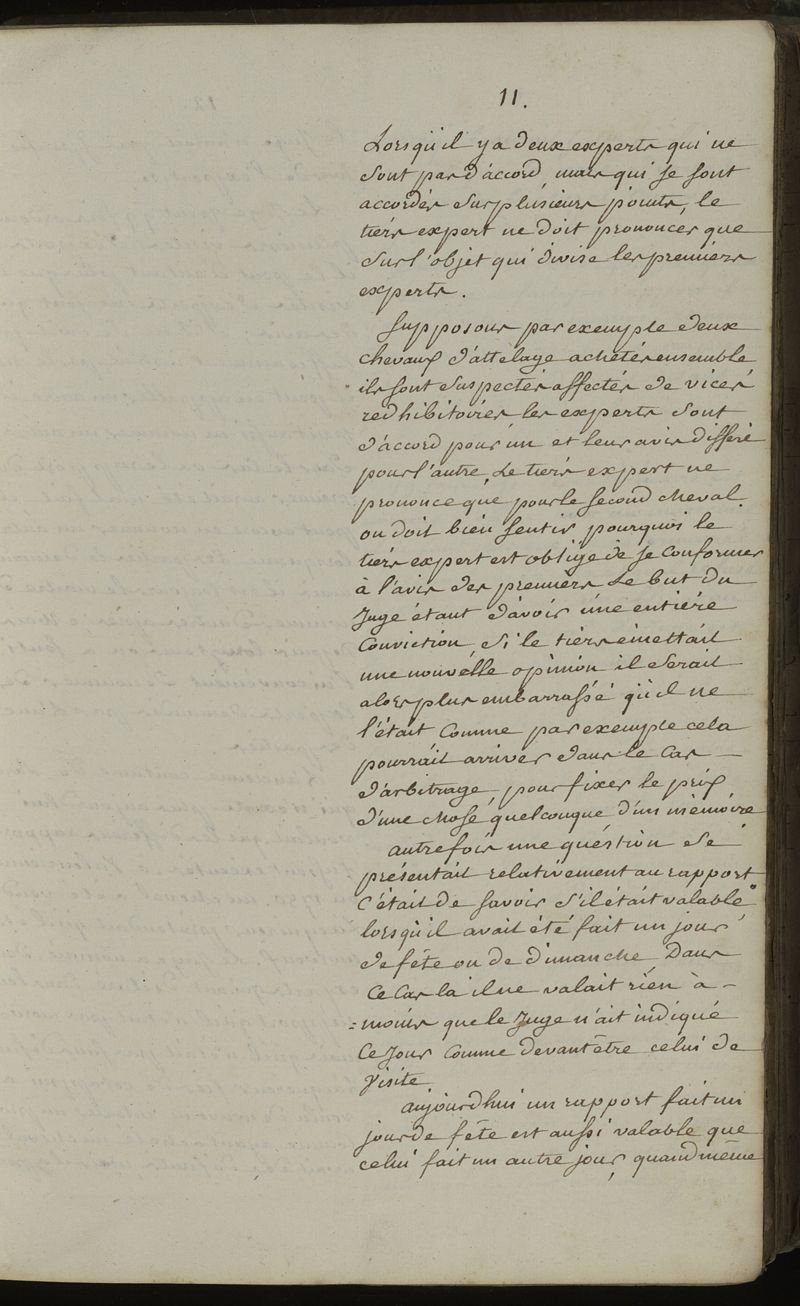 11.
Lorsqu'il y a deux experts qui ne
sont pas d'accord, mais qui se sont
accordés sur plusieurs points, le
tiers expert ne doit prononcer que
sur l'objet qui divise les premiers
experts.
Supposons par exemple deux
chevaux d'attelage achetés ensemble
ils sont suspectés affectés de vices
redhibitoires les experts sont
d'accord pour un et leur avis differe
pour l'autre, Le tiers expert ne
prononce que pour le second cheval.
on doit bien sentir pourquoi le
tiers expert est obligé de se conformer
à l'avis des premiers Le but du
Juge étant d'avoir une entiére
Conviction, si le tiers émettait
une nouvelle opinion il serait
alors plus embarrassé qu'il ne
l'était Comme par exemple cela
pourrait arriver dans le Cas
d'arbitrage, pour fixer le prix
d'une chose quelconque d'un mémoire
autrefois une question se
présentait relativement au rapport
C'était de savoir s'il était valable
lorsqu'il avait été fait un jour
de fête ou de dimanche Dans
Ce Cas la il ne valait rien à-
=moins que le Juge n'ait indiqué
Ce Jour Comme devant être celui de
Visite
aujourdhui un rapport fait un
jour de fête est aussi valable que
celui fait un autre jour, quand même